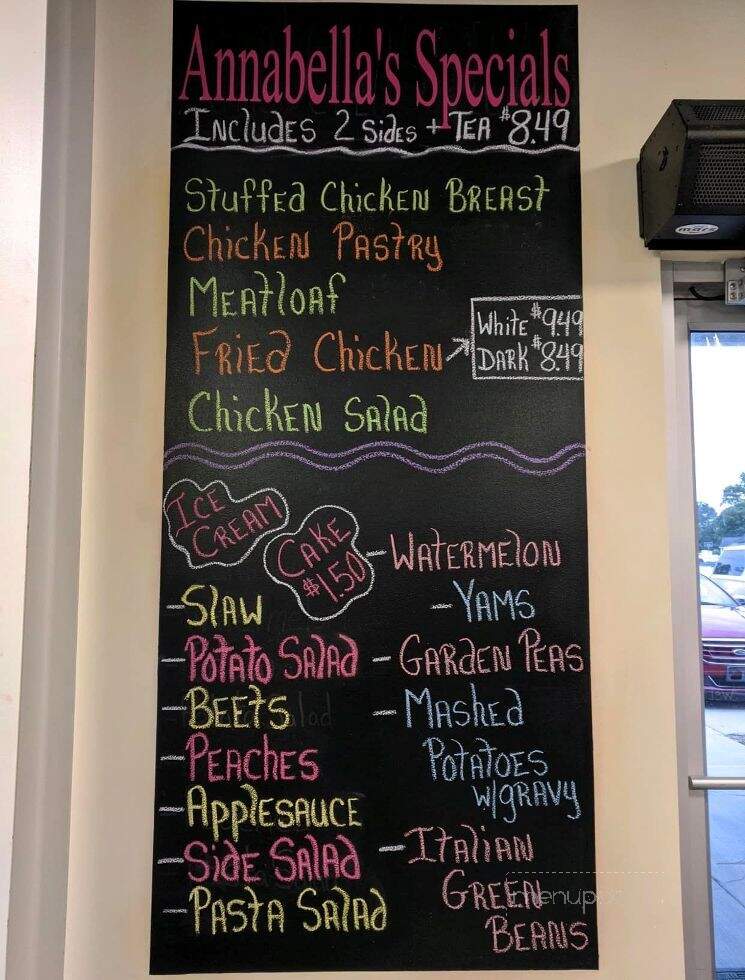 Annabella's Specials
Includes 2 sides + Tea $8.49
Stuffed Chicken Breast
Chicken Pastry
Meatloaf
Fried Chicken
White $9.49
Dark $8.49
Chicken Salad
Ice
Cream
Cake
$1.50
- Slaw
- Potato Salad
- Beets
- Peaches
- Applesauce
- Side Salad
- Pasta Salad
- Watermelon
- Yams
- Garden Peas
- Mashed
Potatoes
w/gravy
- Italian
Green
Beans